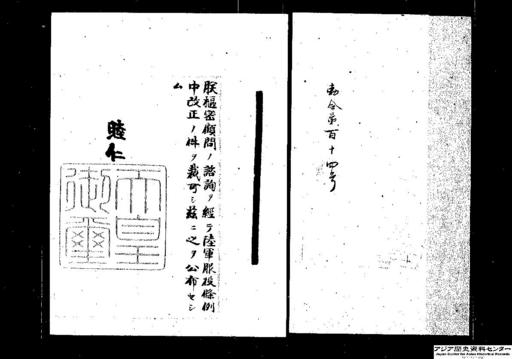 勅令第百十四号
朕樞密顧問ノ諮詢ヲ經テ陸軍服役條例
中改正ノ件ヲ裁可シ茲ニ之ヲ公布セシ
ム
睦仁
天皇
御璽
アジア歴史資料センター
Japan Center for Asian Historical Records